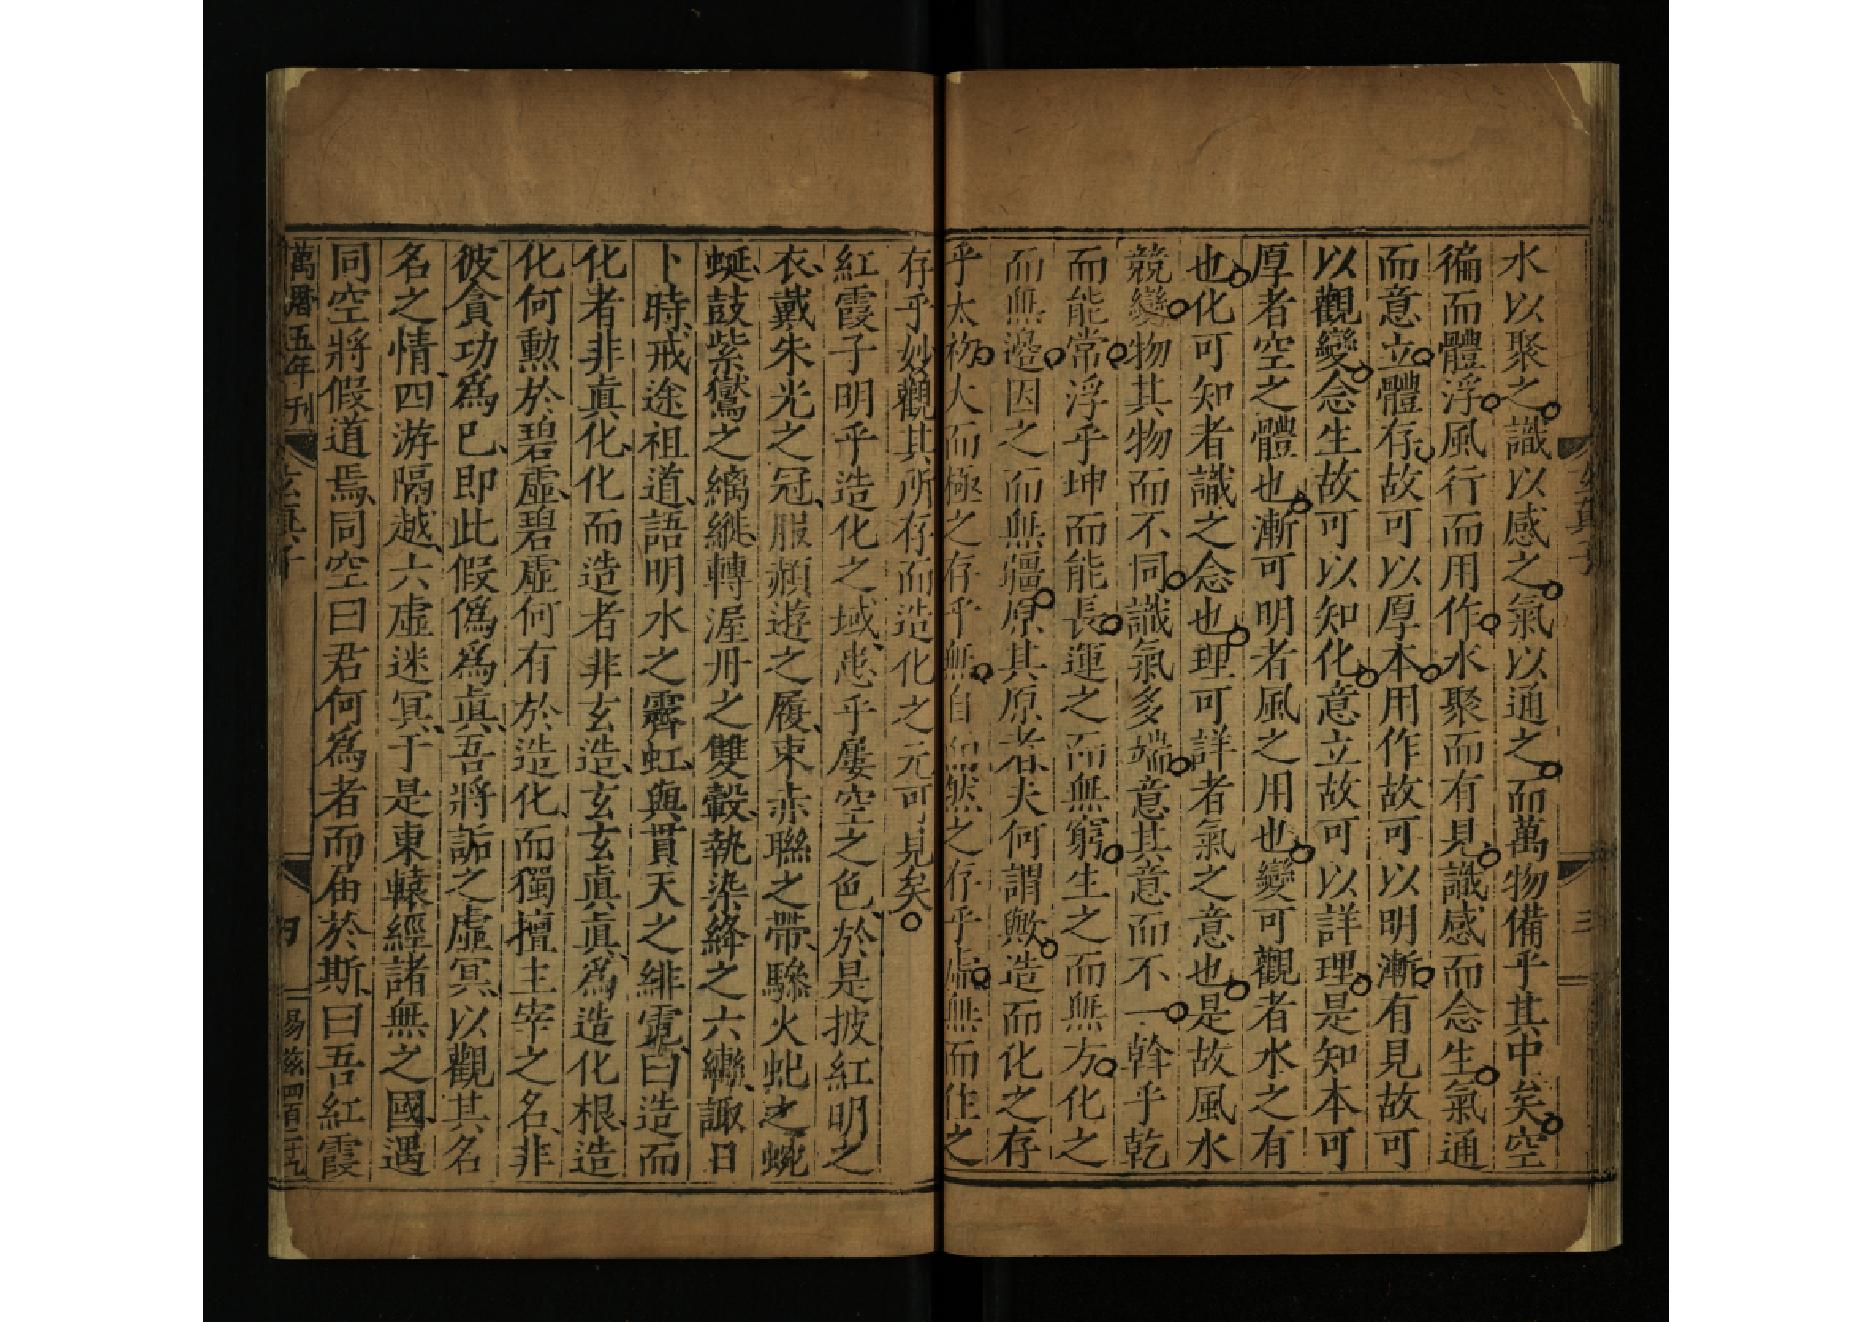 水以聚之識以感之氣以通之而萬物備乎其中矣空
徧而體浮風行而用作水聚而有見識感而念生氣通
而意立體存故可以厚本用作故可以明漸有見故可
以觀變念生故可以知化意立故可以詳理是知本可
厚者空之體也漸可明者風之用也變可觀者水之有
也化可知者識之念也理可詳者氣之意也是故風水
競變物其物而不同識氣多端意其意而不一斡乎乾
而能常浮乎坤而能長運之而無窮生之而無方化之
而無邊因之而無疆原其原者夫何謂歟造而化之存
乎太初大而極之存乎無自而然之存乎虛無而作之
存乎妙觀其所存而造化之元可見矣
紅霞子明乎造化之域患乎屢空之色於是披紅明之
衣戴朱光之冠服赬遊之履束赤聯之帶驂火虵之蜿
蜒鼓紫鸑之縭縰轉渥丹之雙轂執染絳之六轡諏日
卜時戒途祖道語明水之霽虹與貫天之緋霓曰造而
化者非眞化化而造者非玄造玄玄眞眞爲造化根造
化何勳於碧虛碧虛何有於造化而獨擅主宰之名非
彼貪功爲已即此假僞爲眞吾將詬之虛冥以觀其名
名之情四游隔越六虛迷冥于是東轅經諸無之國遇
同空將假道焉同空曰君何為者而届於斯曰吾紅霞
萬曆五年刊
玄真子
三